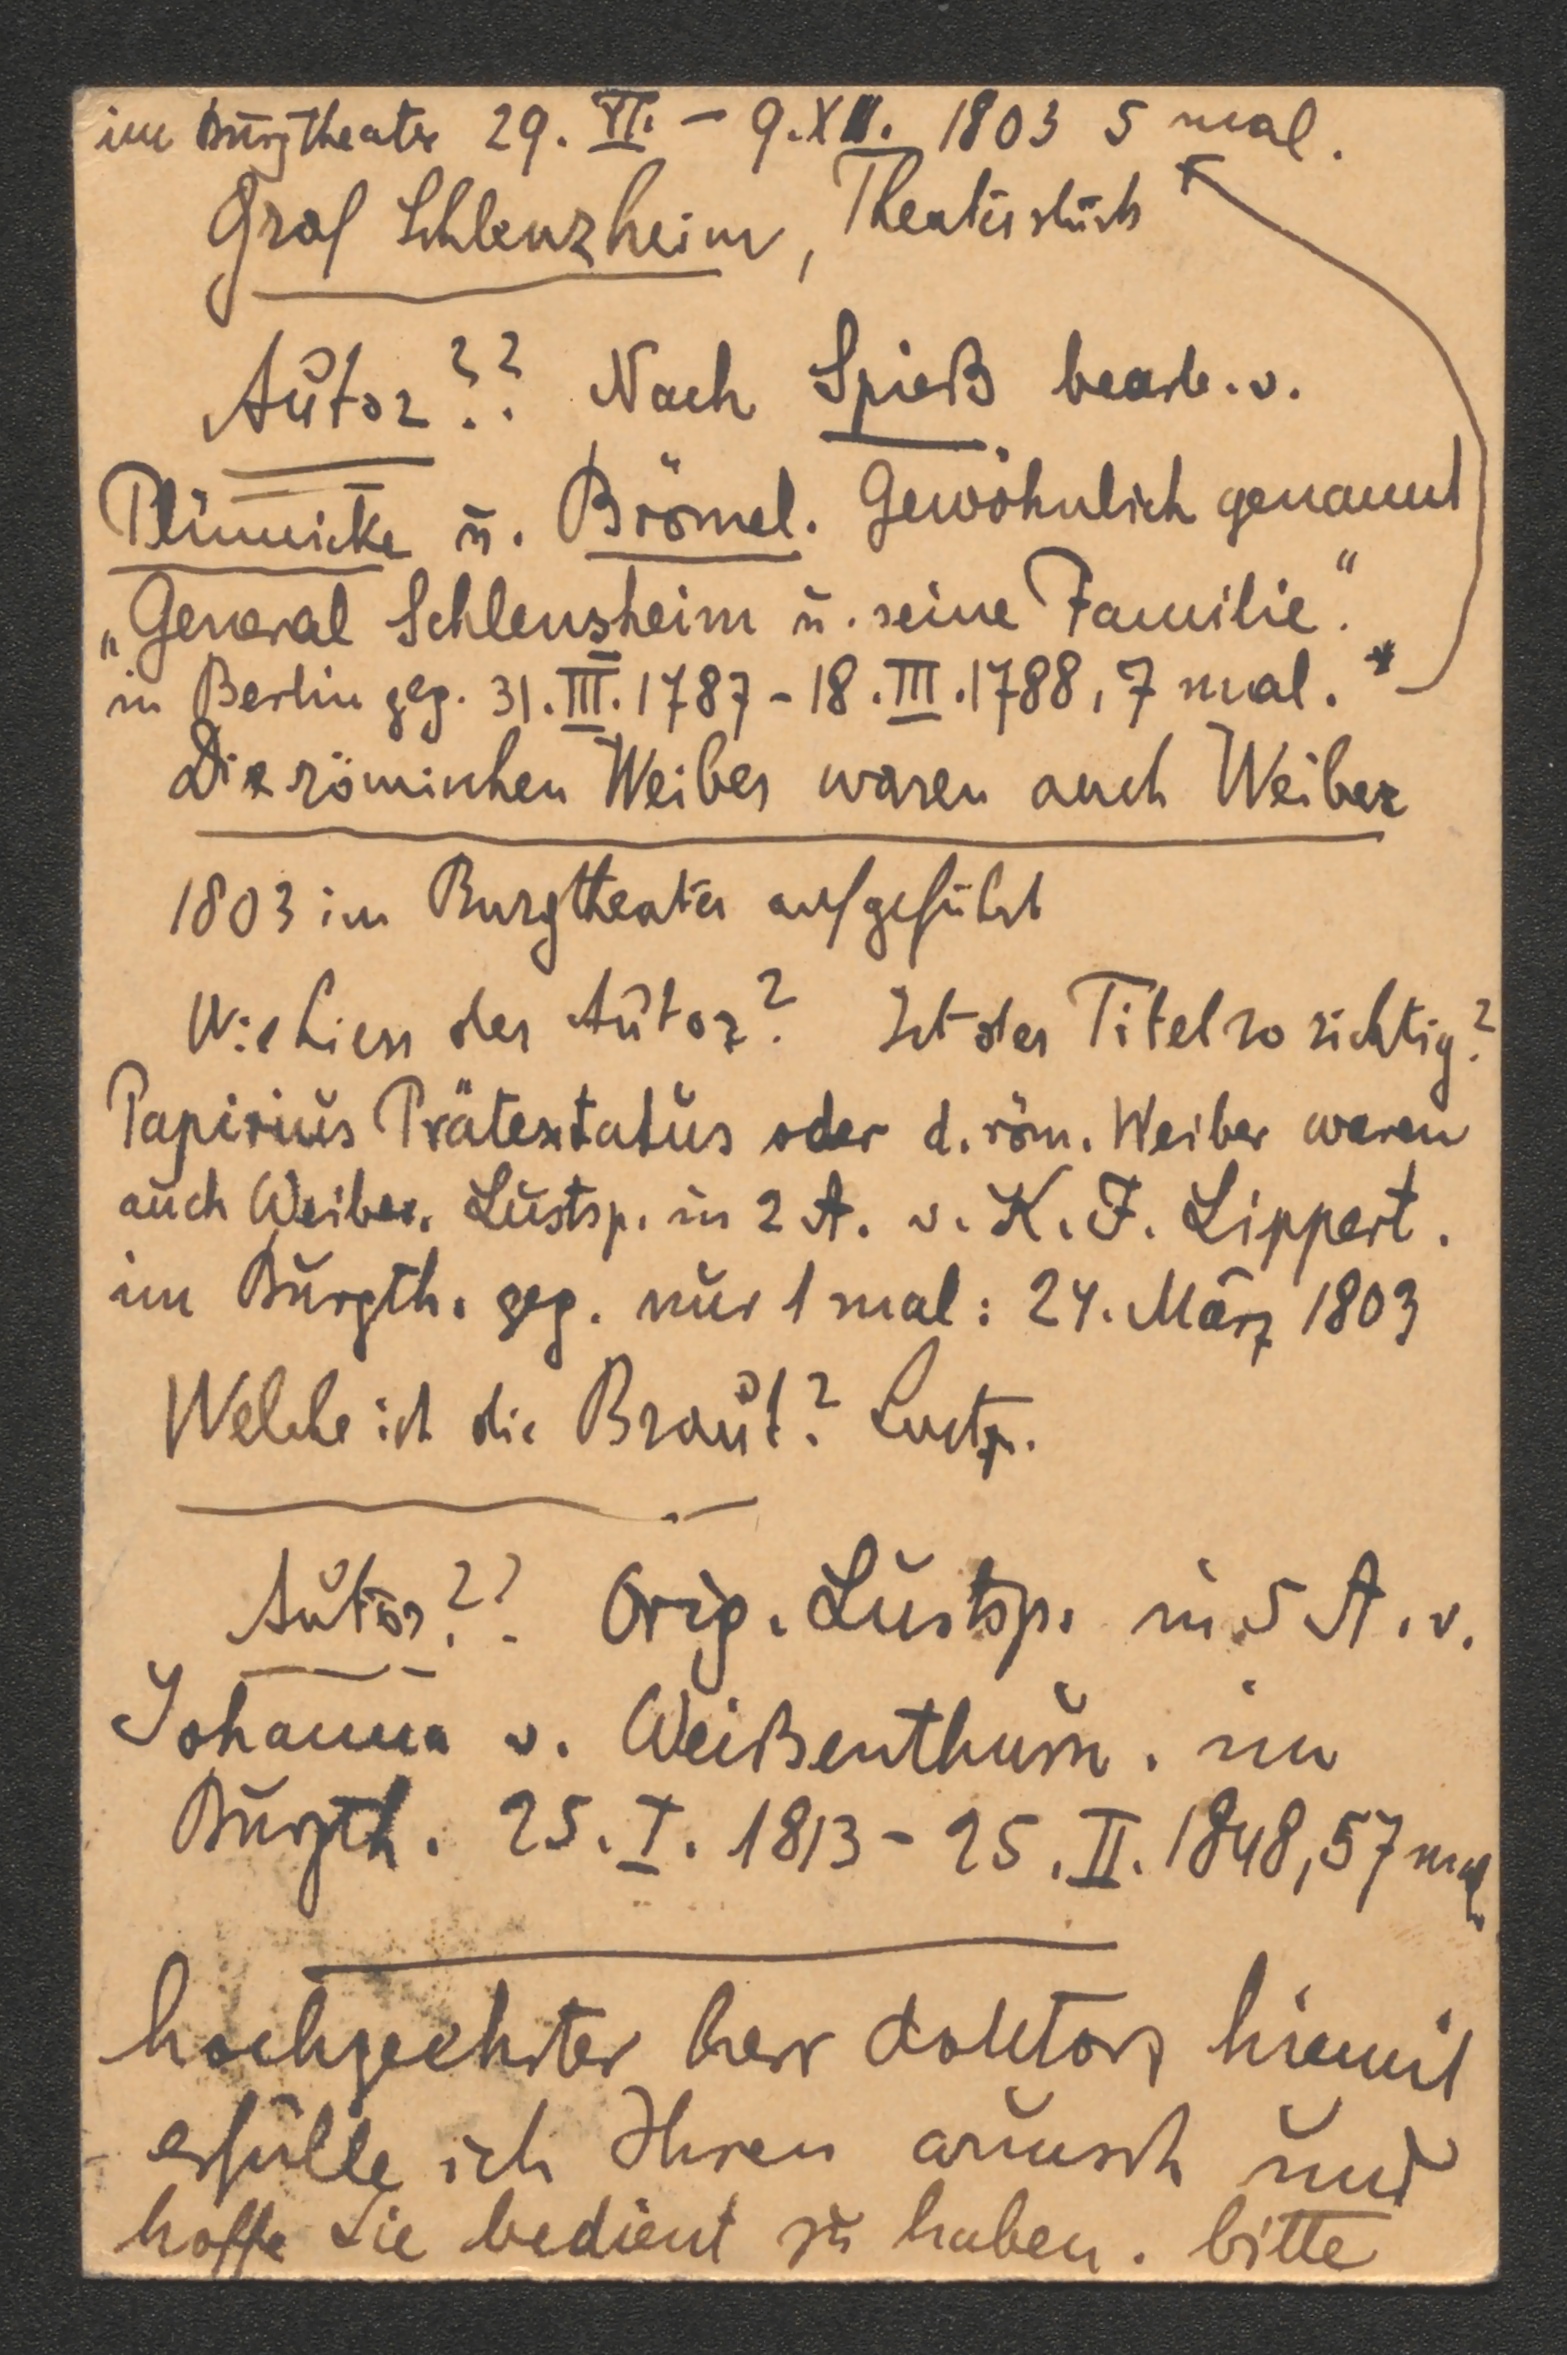 im Burgtheater 29. VI. – 9. XII. 1803 5 mal.
Graf Schlenzheim, Theaterstück
Autor?? Nach Spieß bearb. v.
Plümicke u. Brömel. Gewöhnlich genannt
„General Schlensheim u. seine Familie."
in Berlin geg. 31. III. 1787 – 18. III. 1788, 7 mal. *
Die römischen Weiber waren auch Weiber
1803 im Burgtheater aufgeführt
Wie hiess der Autor? Ist der Titel so richtig?
Papirius Prätextatus oder d. röm. Weiber waren
auch Weiber. Lustsp. in 2 A. v. K. F. Lippert.
im Burgth. geg. nur 1 mal: 24. März 1803
Welche ist die Braut? Lustsp.
Autor?? Orig. Lustsp. in 5 A. v.
Johanna v. Weißenthurn. im
Burgth. 25. I. 1813 – 25. II. 1848, 57 mal
hochgeehrter herr doktor, hiemit
erfülle ich Ihren wunsch und
hoffe Sie bedient zu haben. bitte